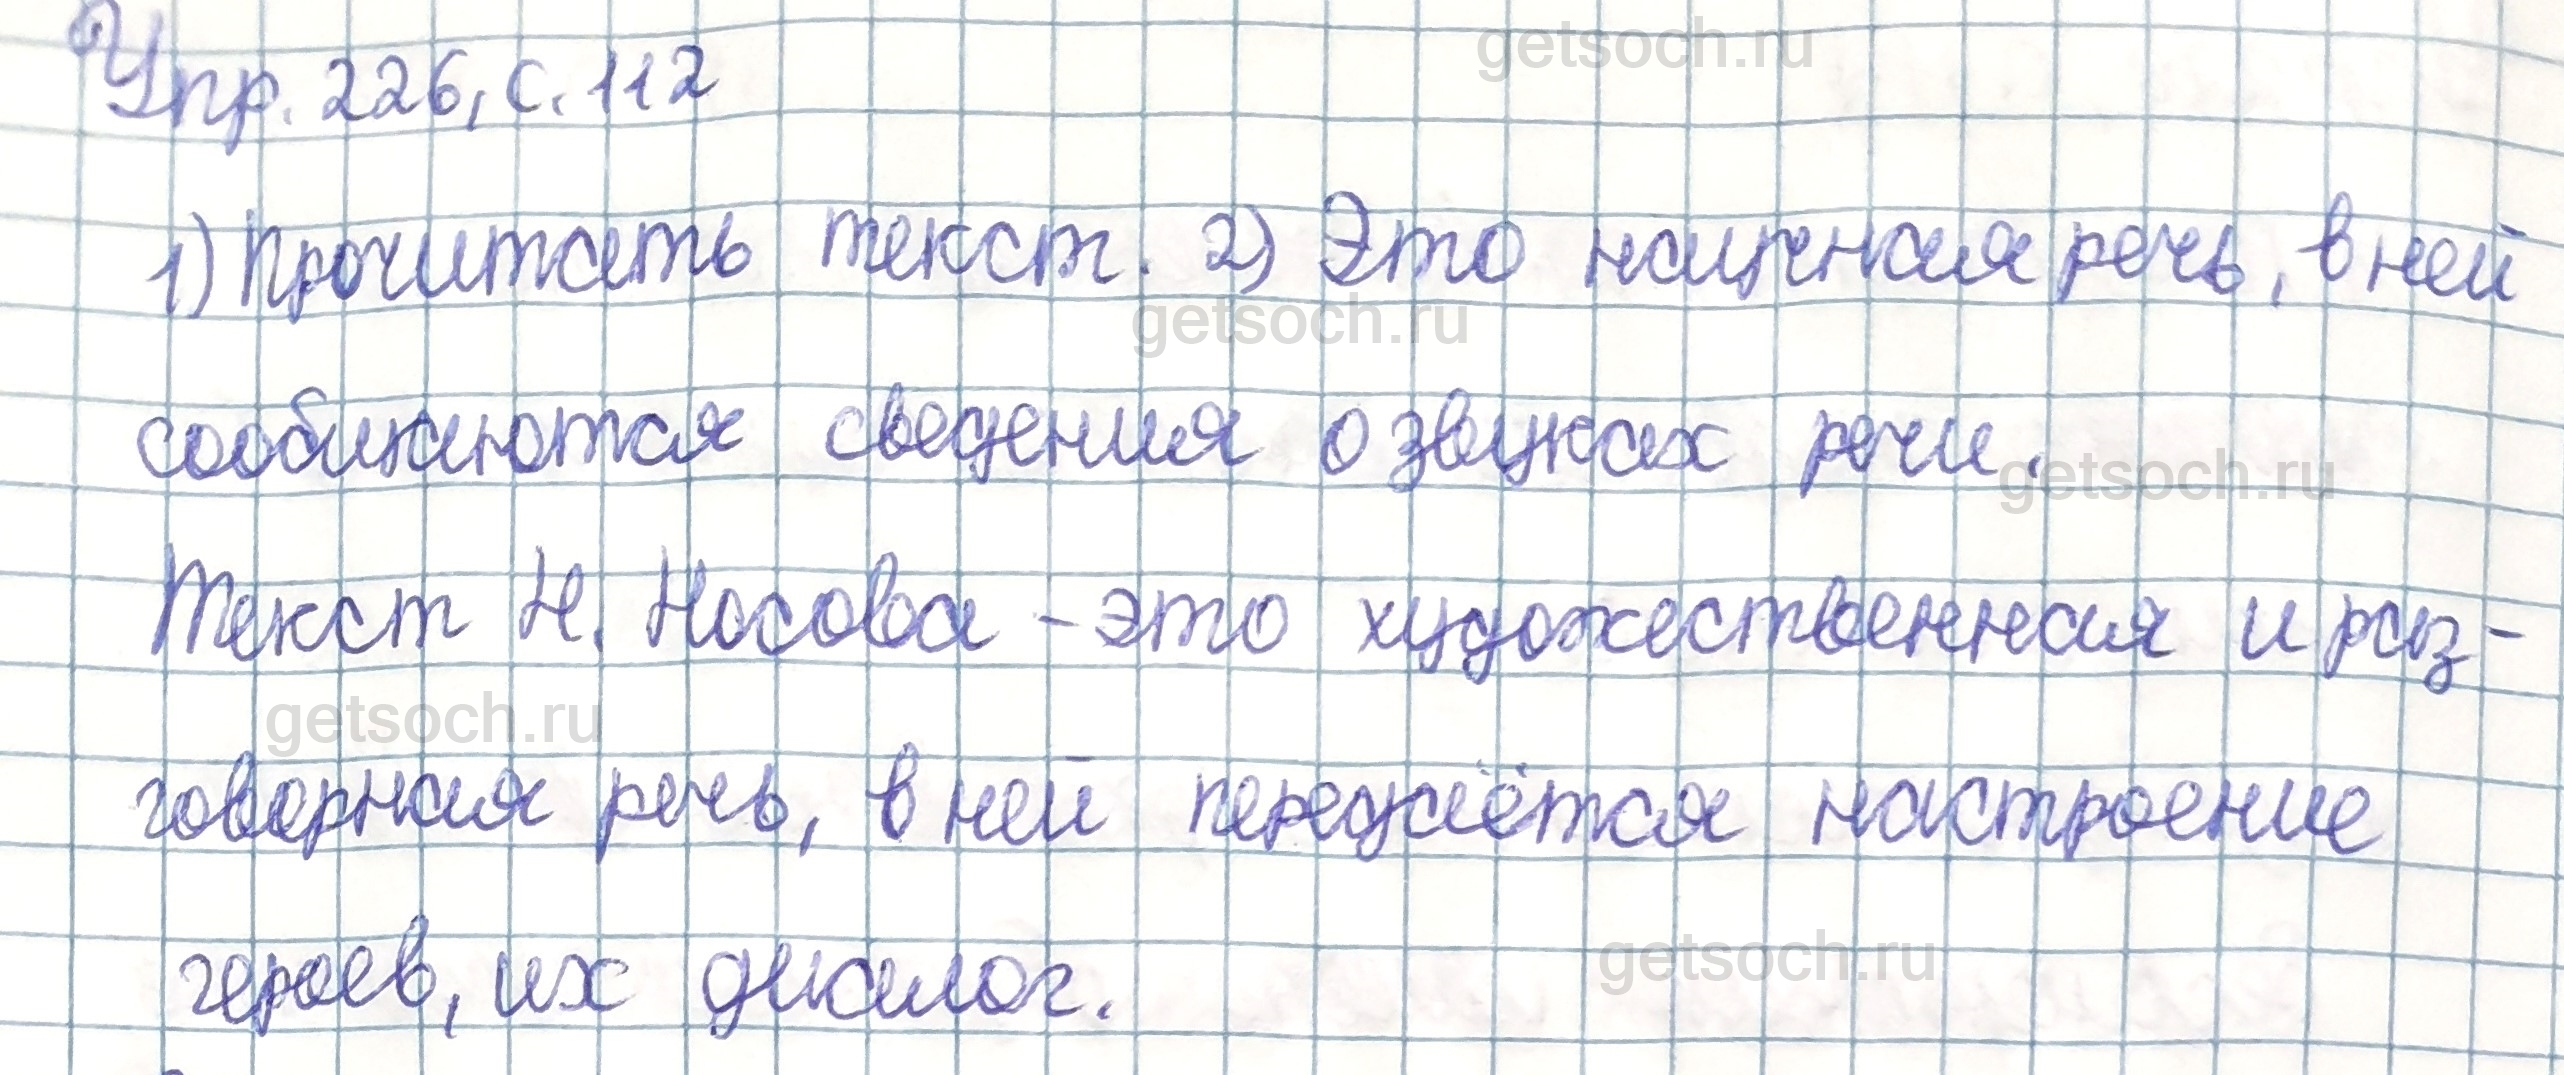 getsoch.ru
Упр. 226, с. 112
1) Прочитать текст. 2) Это научная речь, в ней
getsoch.ru
сообщаются сведения о звуках речи.
getsoch.ru
Текст Н. Носова - это художественная и раз-
getsoch.ru
говорная речь, в ней передаётся настроение
героев, их диалог.
getsoch.ru